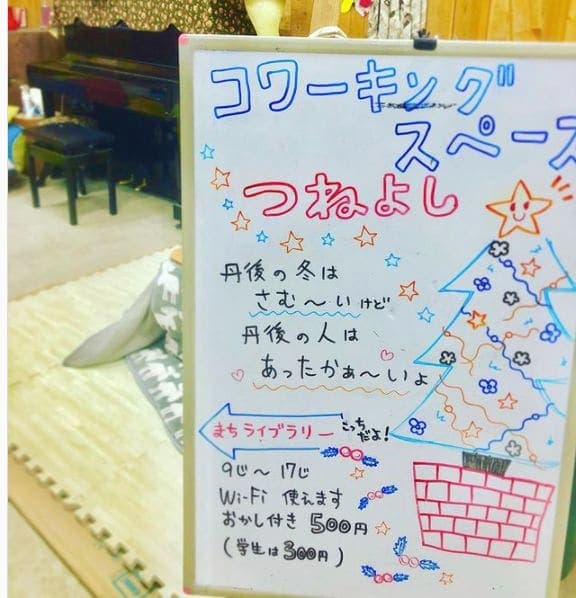 コワーキング
スペース
つねよし
丹後の冬は
さむ〜いけど
丹後の人は
あったかぁ〜いよ
まちライブラリー
こっち
だよ!
9じ〜17じ
Wi-Fi 使えます
おかし付き 500円
(学生は300円)